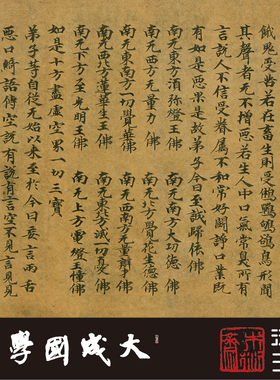 餓鬼受苦若在畜生則受鵂鶹鴝鵒鳥形聞
其聲者无不憎惡若生人中口氣常臭所有
言說人不信受眷屬不和常好鬪諍口業既
有如是惡業是故弟子今日至誠歸依佛
南无東方須弥燈王佛 南无南方大功德佛
南无西方无量力佛 南无北方覺花生德佛
南无東南方一切覺華佛 南无西南方无量辯才佛
南无西北方蓮華生王佛 南无東北方滅一切憂佛
南无下方至光明王佛 南无上方電燈王幢佛
如是十方盡虛空界一切三寶
弟子等自從无始以來至於今日妄言兩舌
惡口綺語傳空說有說有言空不見言見見
大成國學